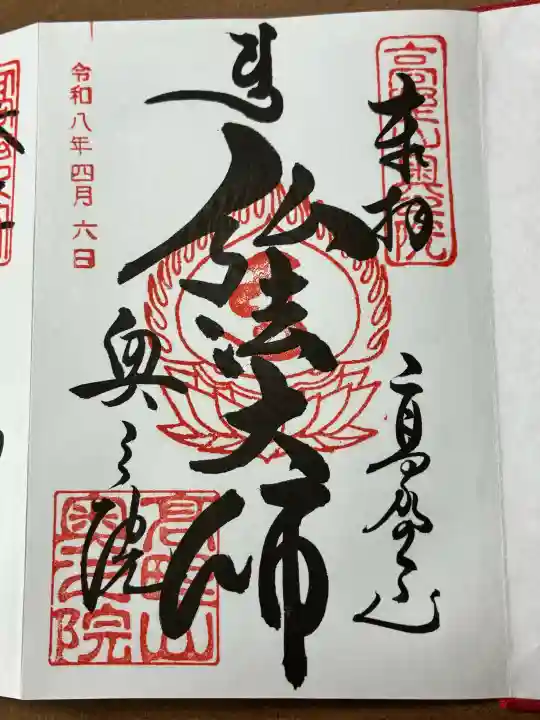 高野山奥之院
奉拝
高野山
弘法大師
令和八年四月六日
奥之院
高野山
奥之院